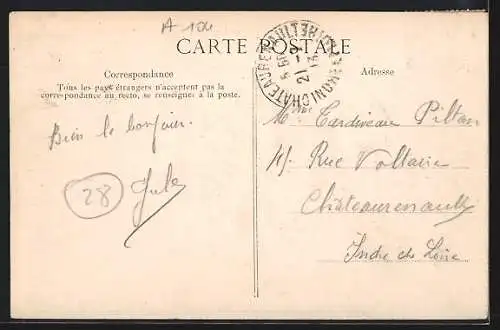 A 104
CARTE POSTALE
Correspondance
Tous les pays étrangers n'acceptent pas la
correspondance au recto, se renseigner à la poste.
Bien le bonjour.
Jule
28
CHATEAURENAULT
INDRE-ET-LOIRE
21-9
13
Adresse
Mr Tardiveau Piltan
Rue Voltaire
Châteaurenault
Indre et Loire